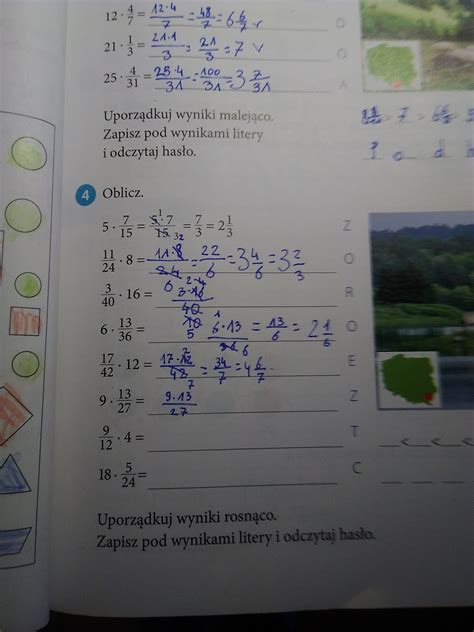 12 · 4/7 = 12·4/7 = 48/7 = 6 6/7 v O
21 · 1/3 = 21·1/3 = 21/3 = 7 v O
25 · 4/31 = 25·4/31 = 100/31 = 3 7/31 A
Uporządkuj wyniki malejąco.
Zapisz pod wynikami litery
i odczytaj hasło.
4 Oblicz.
5 · 7/15 = 5·7/15 = 7/3 = 2 1/3 Z
11/24 · 8 = 11·8/24 = 22/6 = 3 4/6 = 3 2/3 O
3/40 · 16 = 3·16/40 R
6 · 13/36 = 6·13/36 = 13/6 = 2 1/6 O
17/42 · 12 = 17·12/42 = 34/7 = 4 6/7 E
9 · 13/27 = 9·13/27 Z
9/12 · 4 = T
18 · 5/24 = C
Uporządkuj wyniki rosnąco.
Zapisz pod wynikami litery i odczytaj hasło.